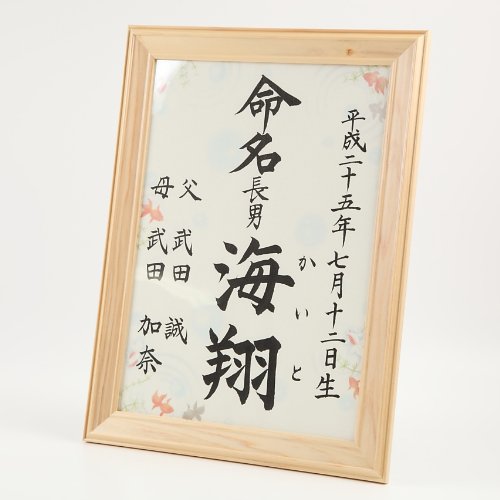 平成二十五年七月十二日生
命名
長男
海翔
かいと
父 武田 誠
母 武田 加奈